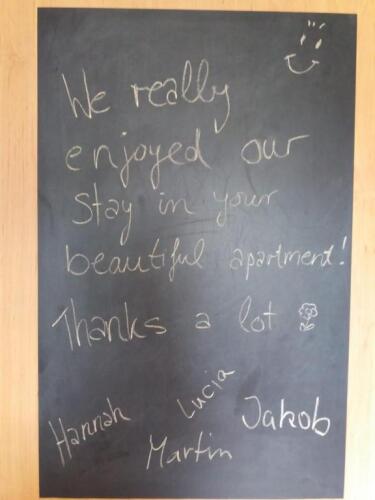 We really
enjoyed our
Stay in your
beautiful apartment!
Thanks a lot
Hannah
Lucia
Martin
Jakob